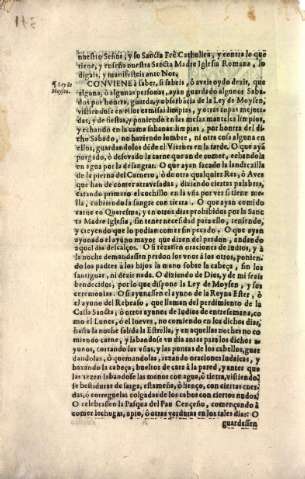 nuestro Señor, y su Sancta Fè Catholica, y contra lo que
tiene, y enseña nuestra Sancta Madre Iglesia Romana, lo
digais, y manifesteis ante Nos.
¶ Ley de
Moysen.
CONVIENE à saber, si sabeis, ò aveis oydo dezir, que
alguna, ò algunas personas, ayan guardado algunos Saba-
dos por honra, guarda, y observancia de la Ley de Moysen,
vistiendose en ellos camisas limpias, y otras ropas mejora-
das, y de fiestas, y poniendo en las mesas manteles limpios,
y echando en las camas sabanas limpias, por honra del di-
cho Sabado, no haziendo lumbre, ni otra cosa alguna en
ellos, guardandolos desde el Viernes en la tarde. O que ayan
purgado, ò desevado la carne que an de comer, echandola
en agua por la desangrar. O que ayan sacado la landrecilla
de la pierna del Carnero, ò de otra qualquier Res, ò Aves
que han de comer atravesadas, diziendo ciertas palabras,
catando primero el cochillo en la vña por ver si tiene me-
lla, cubriendo la sangre con tierra. O que ayan comido
carne en Quaresma, y en otros dias prohibidos por la Sanc-
ta Madre Iglesia, sin tener necesidad para ello, teniendo,
y creyendo que la podian comer sin pecado. O que ayan
ayunado el ayuno mayor que dizen del perdon, andando
aquel dia descalços. O si rezassen oraciones de Judios, y à
la noche demandassen perdon los vnos à los otros, ponien-
do los padres à los hijos la mano sobre la cabeça, sin los
santiguar, ni dezir nada. O diziendo de Dios, y de mi seais
bendecidos, por lo que dispone la Ley de Moysen, y sus
ceremonias. O si ayunassen el ayuno de la Reyna Ester, ò
el ayuno del Rebeaso, que llaman del perdimiento de la
Casa Sancta, ò otros ayunos de Judios de entre semana, co-
mo el Lunes, ò el Jueves, no comiendo en los dichos dias,
hasta la noche salida la Estrella, y en aquellas noches no co-
miendo carne, y labandose vn dia antes para los dichos a-
yunos, cortandose las vñas, y las puntas de los cabellos, guar-
dandolas, ò quemandolas, rezando oraciones Judaicas, y
baxando la cabeça, bueltos de cara à la pared, y antes que
las rezen labandose las manos con agua, ò tierra, vistiendo-
se vestiduras de sarga, estameña, ò lienço, con ciertas cuer-
das, ò correguelas colgadas de los cabos con ciertos nudos.
O celebrassen la Pasqua del Pan Cenceño, començando à
comer lechugas, apio, ò otras verduras en los tales dias: O
guardassen